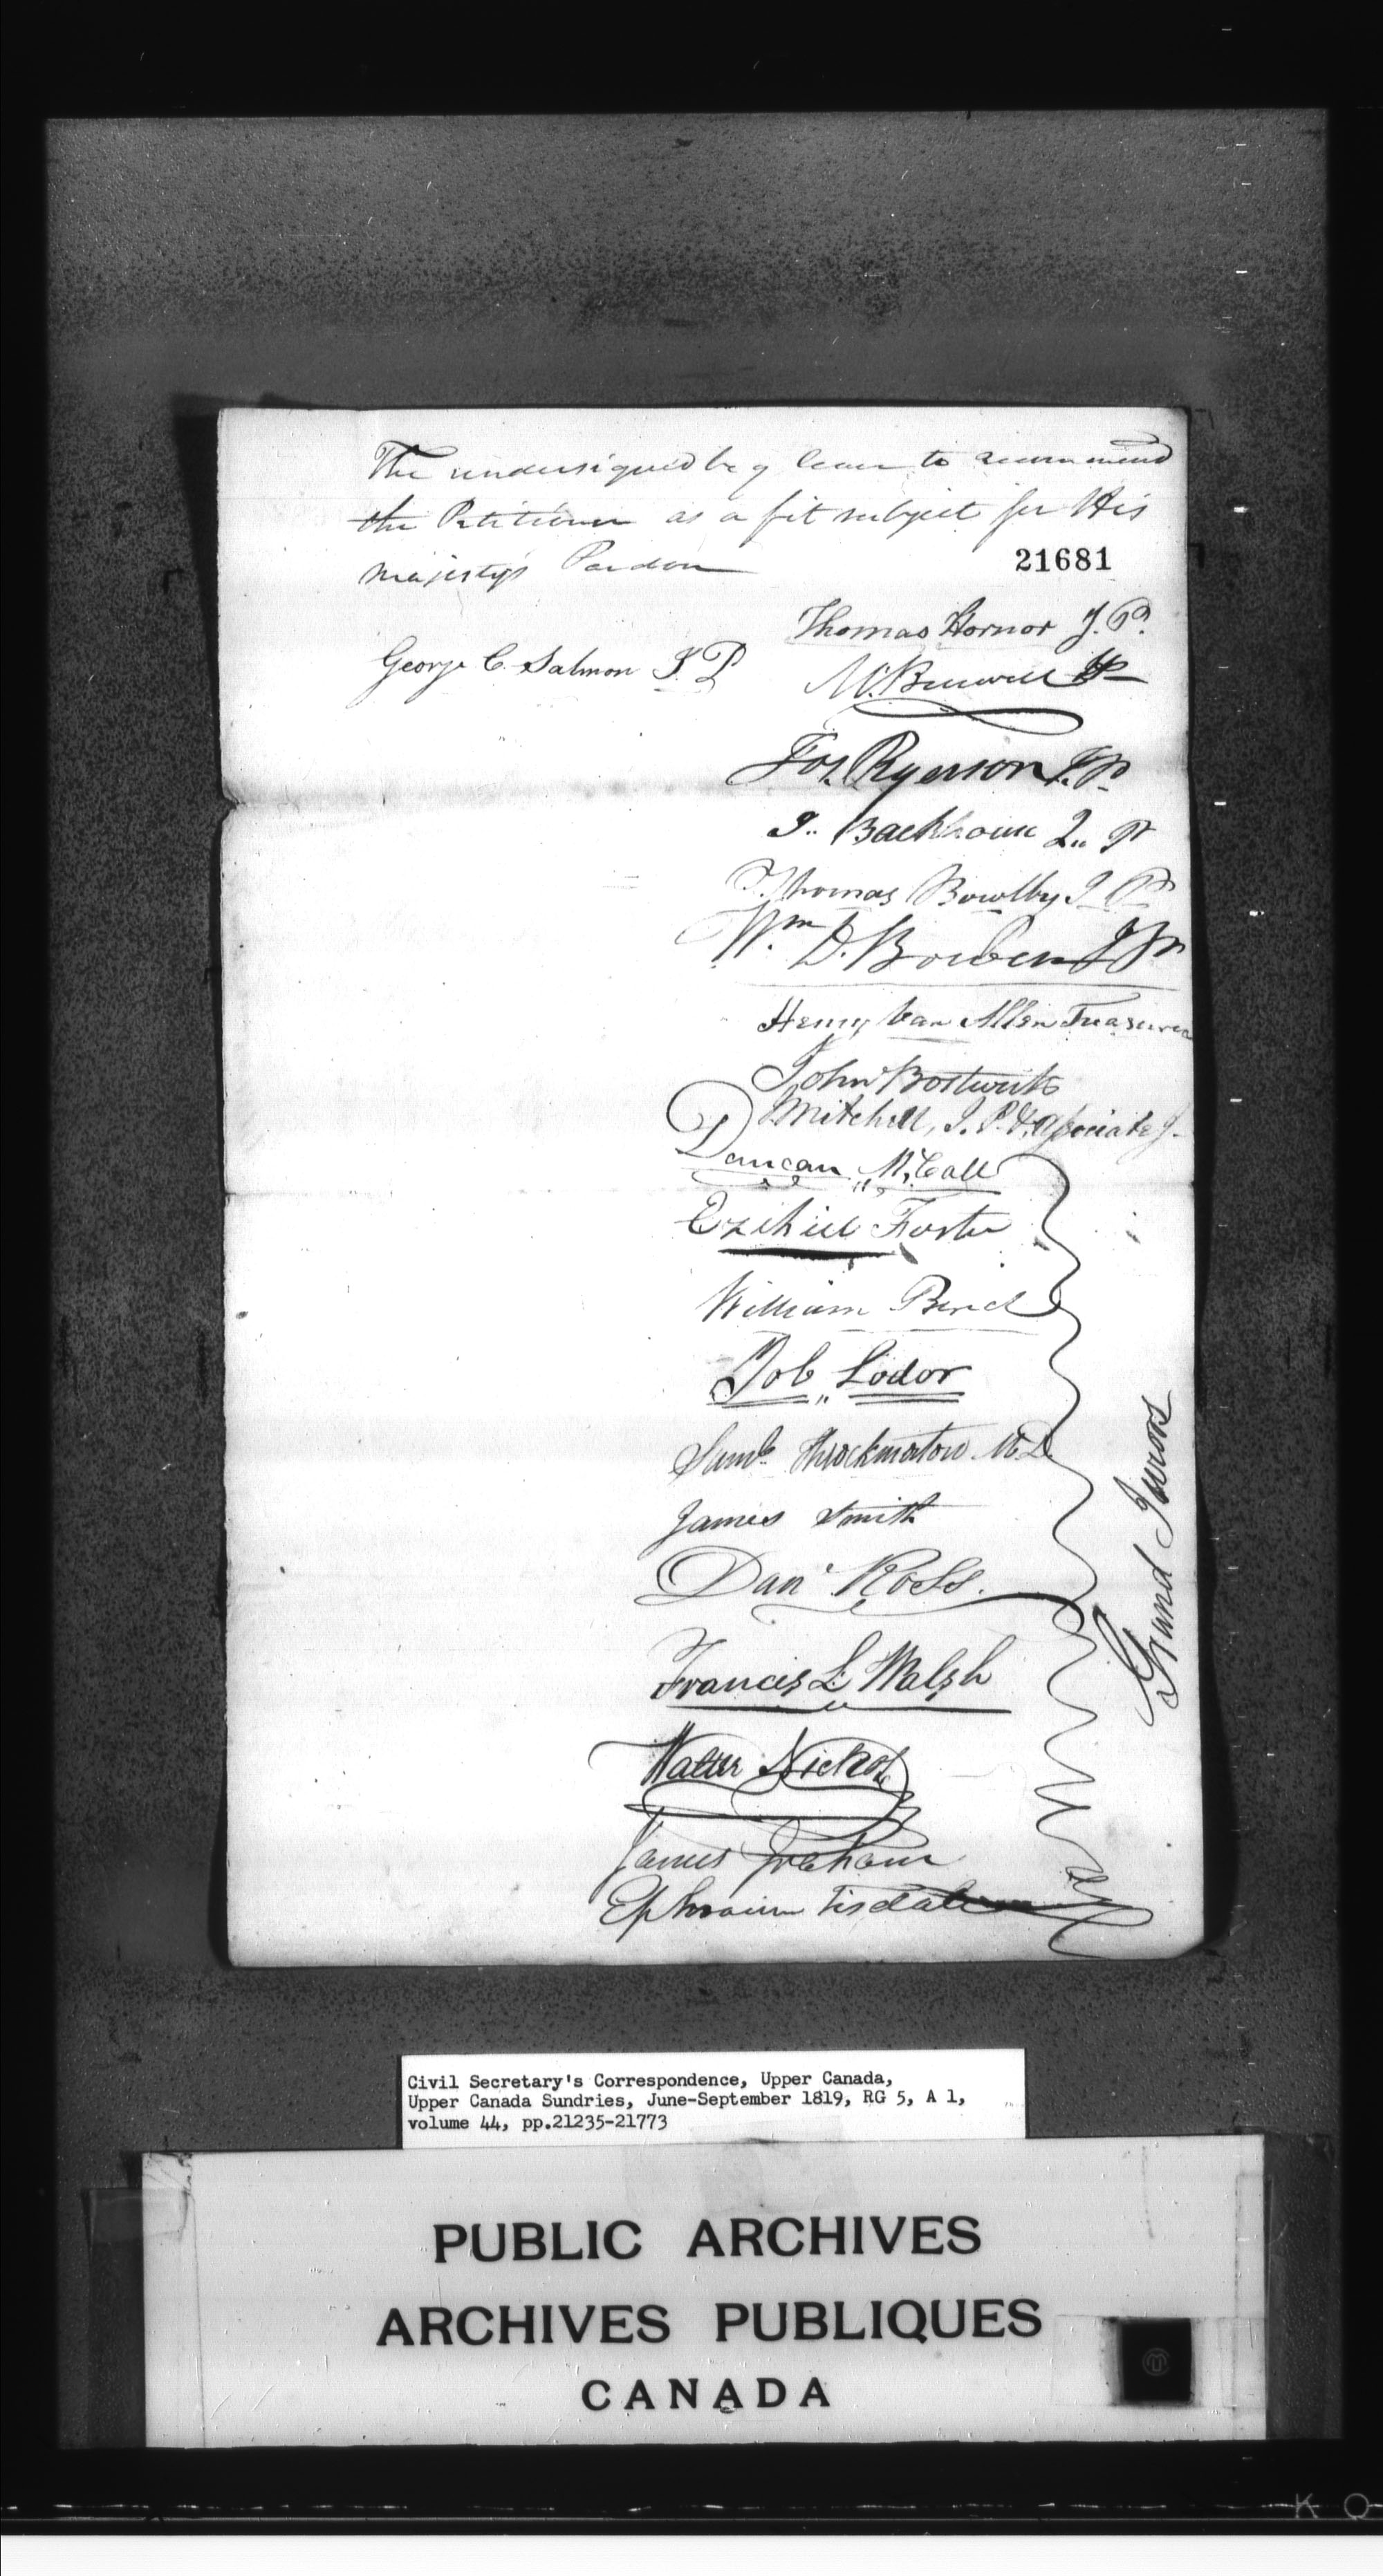 The undersigned beg leave to recommend
the Petitioner as a fit subject for His
Majestys Pardon
21681
Thomas Hornor J.P.
George C. Salmon J.P
M. Burwell JP
Jos. Ryerson J.P.
J.. Backhouse J.. P
Thomas Bowlby J P
Wm D. Bowen J P
Henry Van Allen Treasurer
John Bostwick
J Mitchell, J. P. & Associate J.
Duncan McCall
Ezekiel Foster
William Bird
Job Lodor
Saml. Throckmorton M.D.
James Smith
Dan Ross.
Francis L Walsh
Walter Nichol
James Graham
Ephraim Tisdale
Grand Jurors
Civil Secretary's Correspondence, Upper Canada,
Upper Canada Sundries, June-September 1819, RG 5, A 1,
volume 44, pp.21235-21773
PUBLIC ARCHIVES
ARCHIVES PUBLIQUES
CANADA
K O